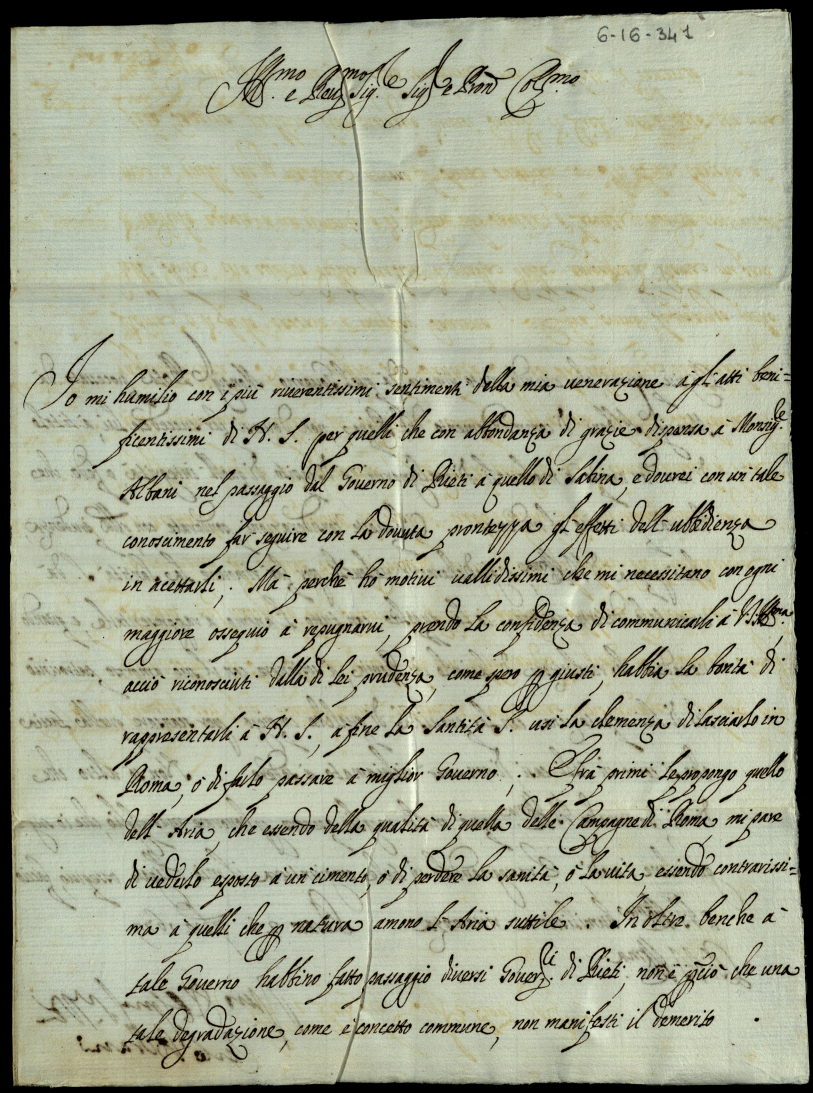 6-16-341
Ill.mo e Reu.mo Sig.re Sig.re e Pron Col.mo
Io mi humilio con i più riuerentissimi sentimenti della mia uenerazione à gl'atti beni=
ficentissimi di N. S. per quelli che con abbondanza di grazie dispensa à Monsig.re
Albani nel passaggio dal Gouerno di Rieti à quello di Sabina, e dourei con un tale
conoscimento far seguire con la douuta prontezza gl'effetti dell'ubbidienza
in acettarli; Mà perche hò motiui uallidissimi che mi necessitano con ogni
maggiore ossequio à repugnarui, prendo la confidenza di communicarli à V.S. Ill.ma,
acciò riconosciuti dalla di lei prudenza, come spero p giusti, habbia la bontà di
rappresentarli à N. S., à fine la Santità S. usi la clemenza di lasciarlo in
Roma, ò di farlo passare à miglior Gouerno; Frà primi le propongo quello
dell'Aria, che essendo della qualità di quella delle Campagne di Roma, mi pare
di uederlo esposto à un cimento, ò di perdere la sanità, ò la uita essendo contrarissi=
ma à quelli che p natura amono l'Aria suttile. In oltre benche à
tale Gouerno habbino fatto passaggio diuersi Gouer.ri di Rieti, non è pciò che una
tale degradazione, come è concetto commune, non manifesti il demerito